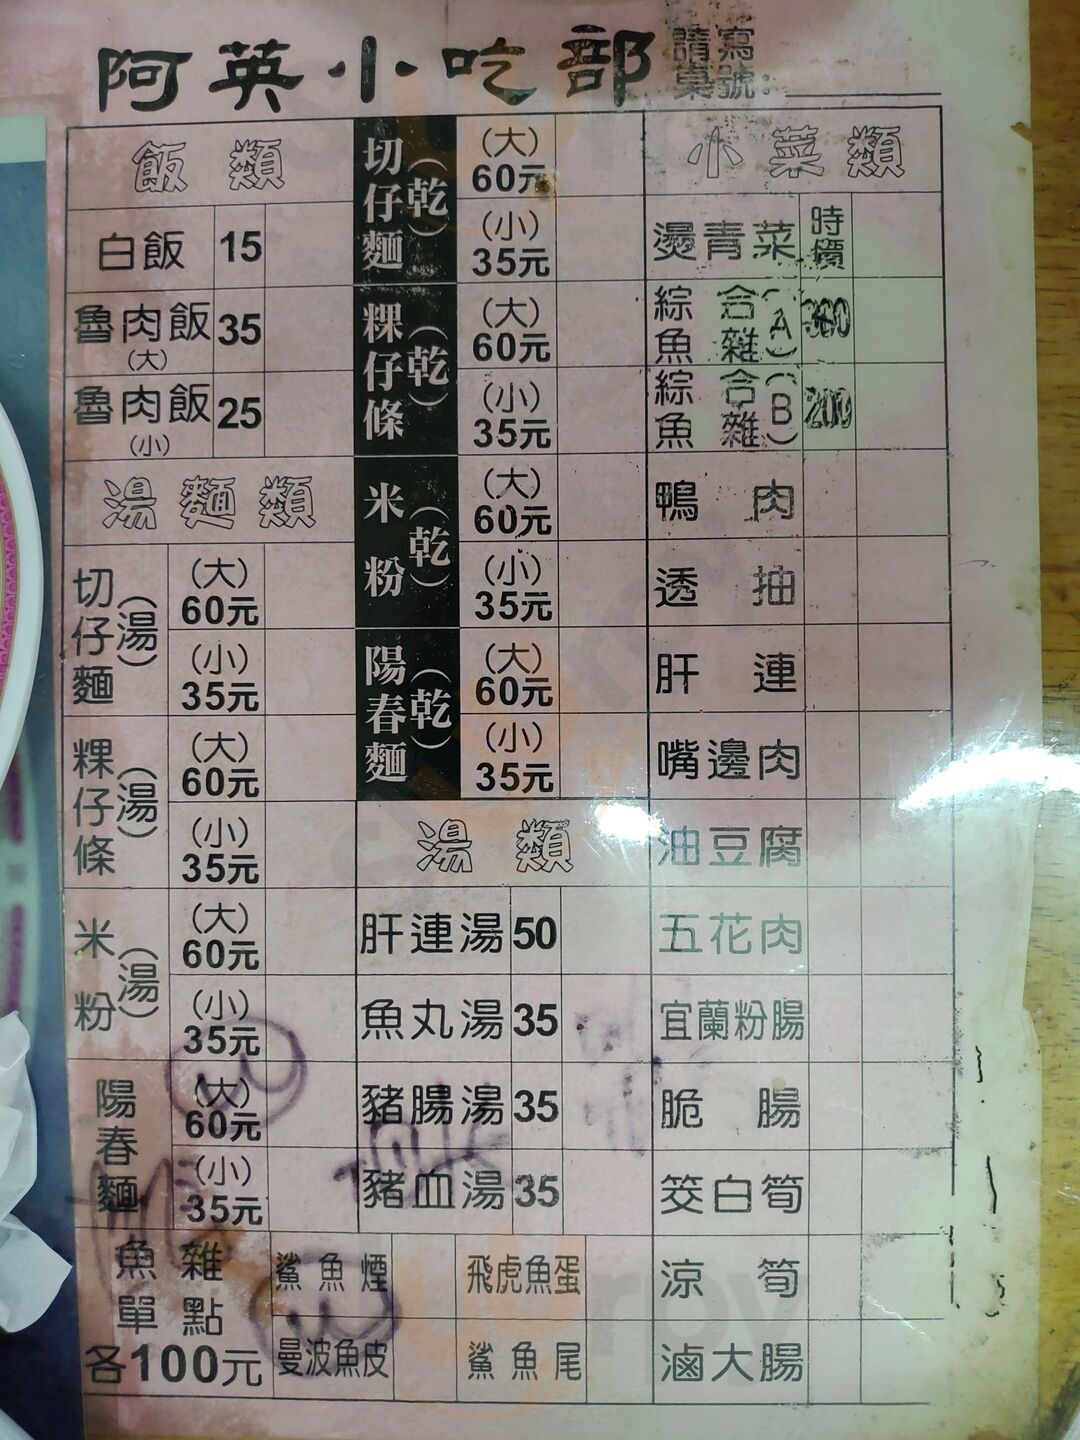 阿英小吃部
請寫
桌號：
飯類
白飯 15
魯肉飯(大) 35
魯肉飯(小) 25
湯麵類
切仔麵(湯) (大) 60元
(小) 35元
粿仔條(湯) (大) 60元
(小) 35元
米粉(湯) (大) 60元
(小) 35元
陽春麵 (大) 60元
(小) 35元
切仔麵(乾) (大) 60元
(小) 35元
粿仔條(乾) (大) 60元
(小) 35元
米粉(乾) (大) 60元
(小) 35元
陽春麵(乾) (大) 60元
(小) 35元
湯類
肝連湯 50
魚丸湯 35
豬腸湯 35
豬血湯 35
小菜類
燙青菜 時價
綜合魚雜(A) 360
綜合魚雜(B) 200
鴨肉
透抽
肝連
嘴邊肉
油豆腐
五花肉
宜蘭粉腸
脆腸
筊白筍
涼筍
滷大腸
魚雜單點各100元
鯊魚煙
飛虎魚蛋
曼波魚皮
鯊魚尾